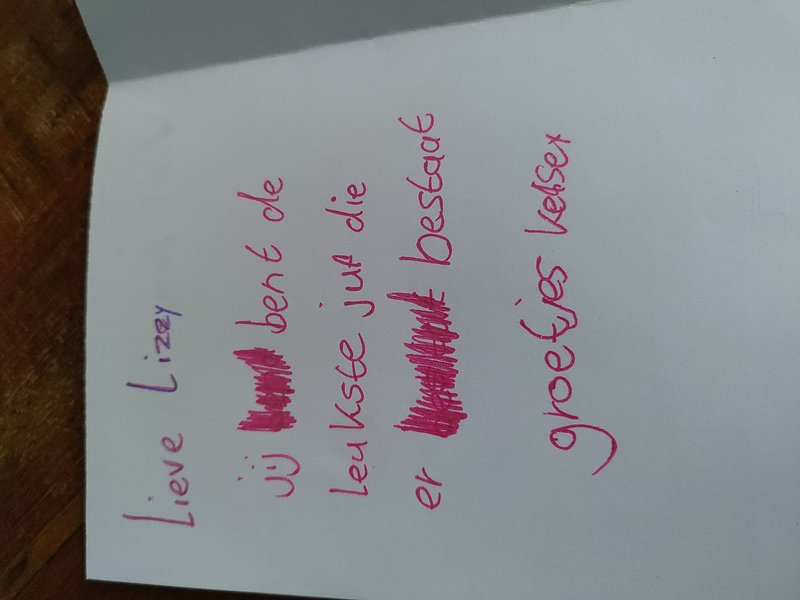 Lieve Lizzy
jij bent de
leukste juf die
er bestaat
groetjes